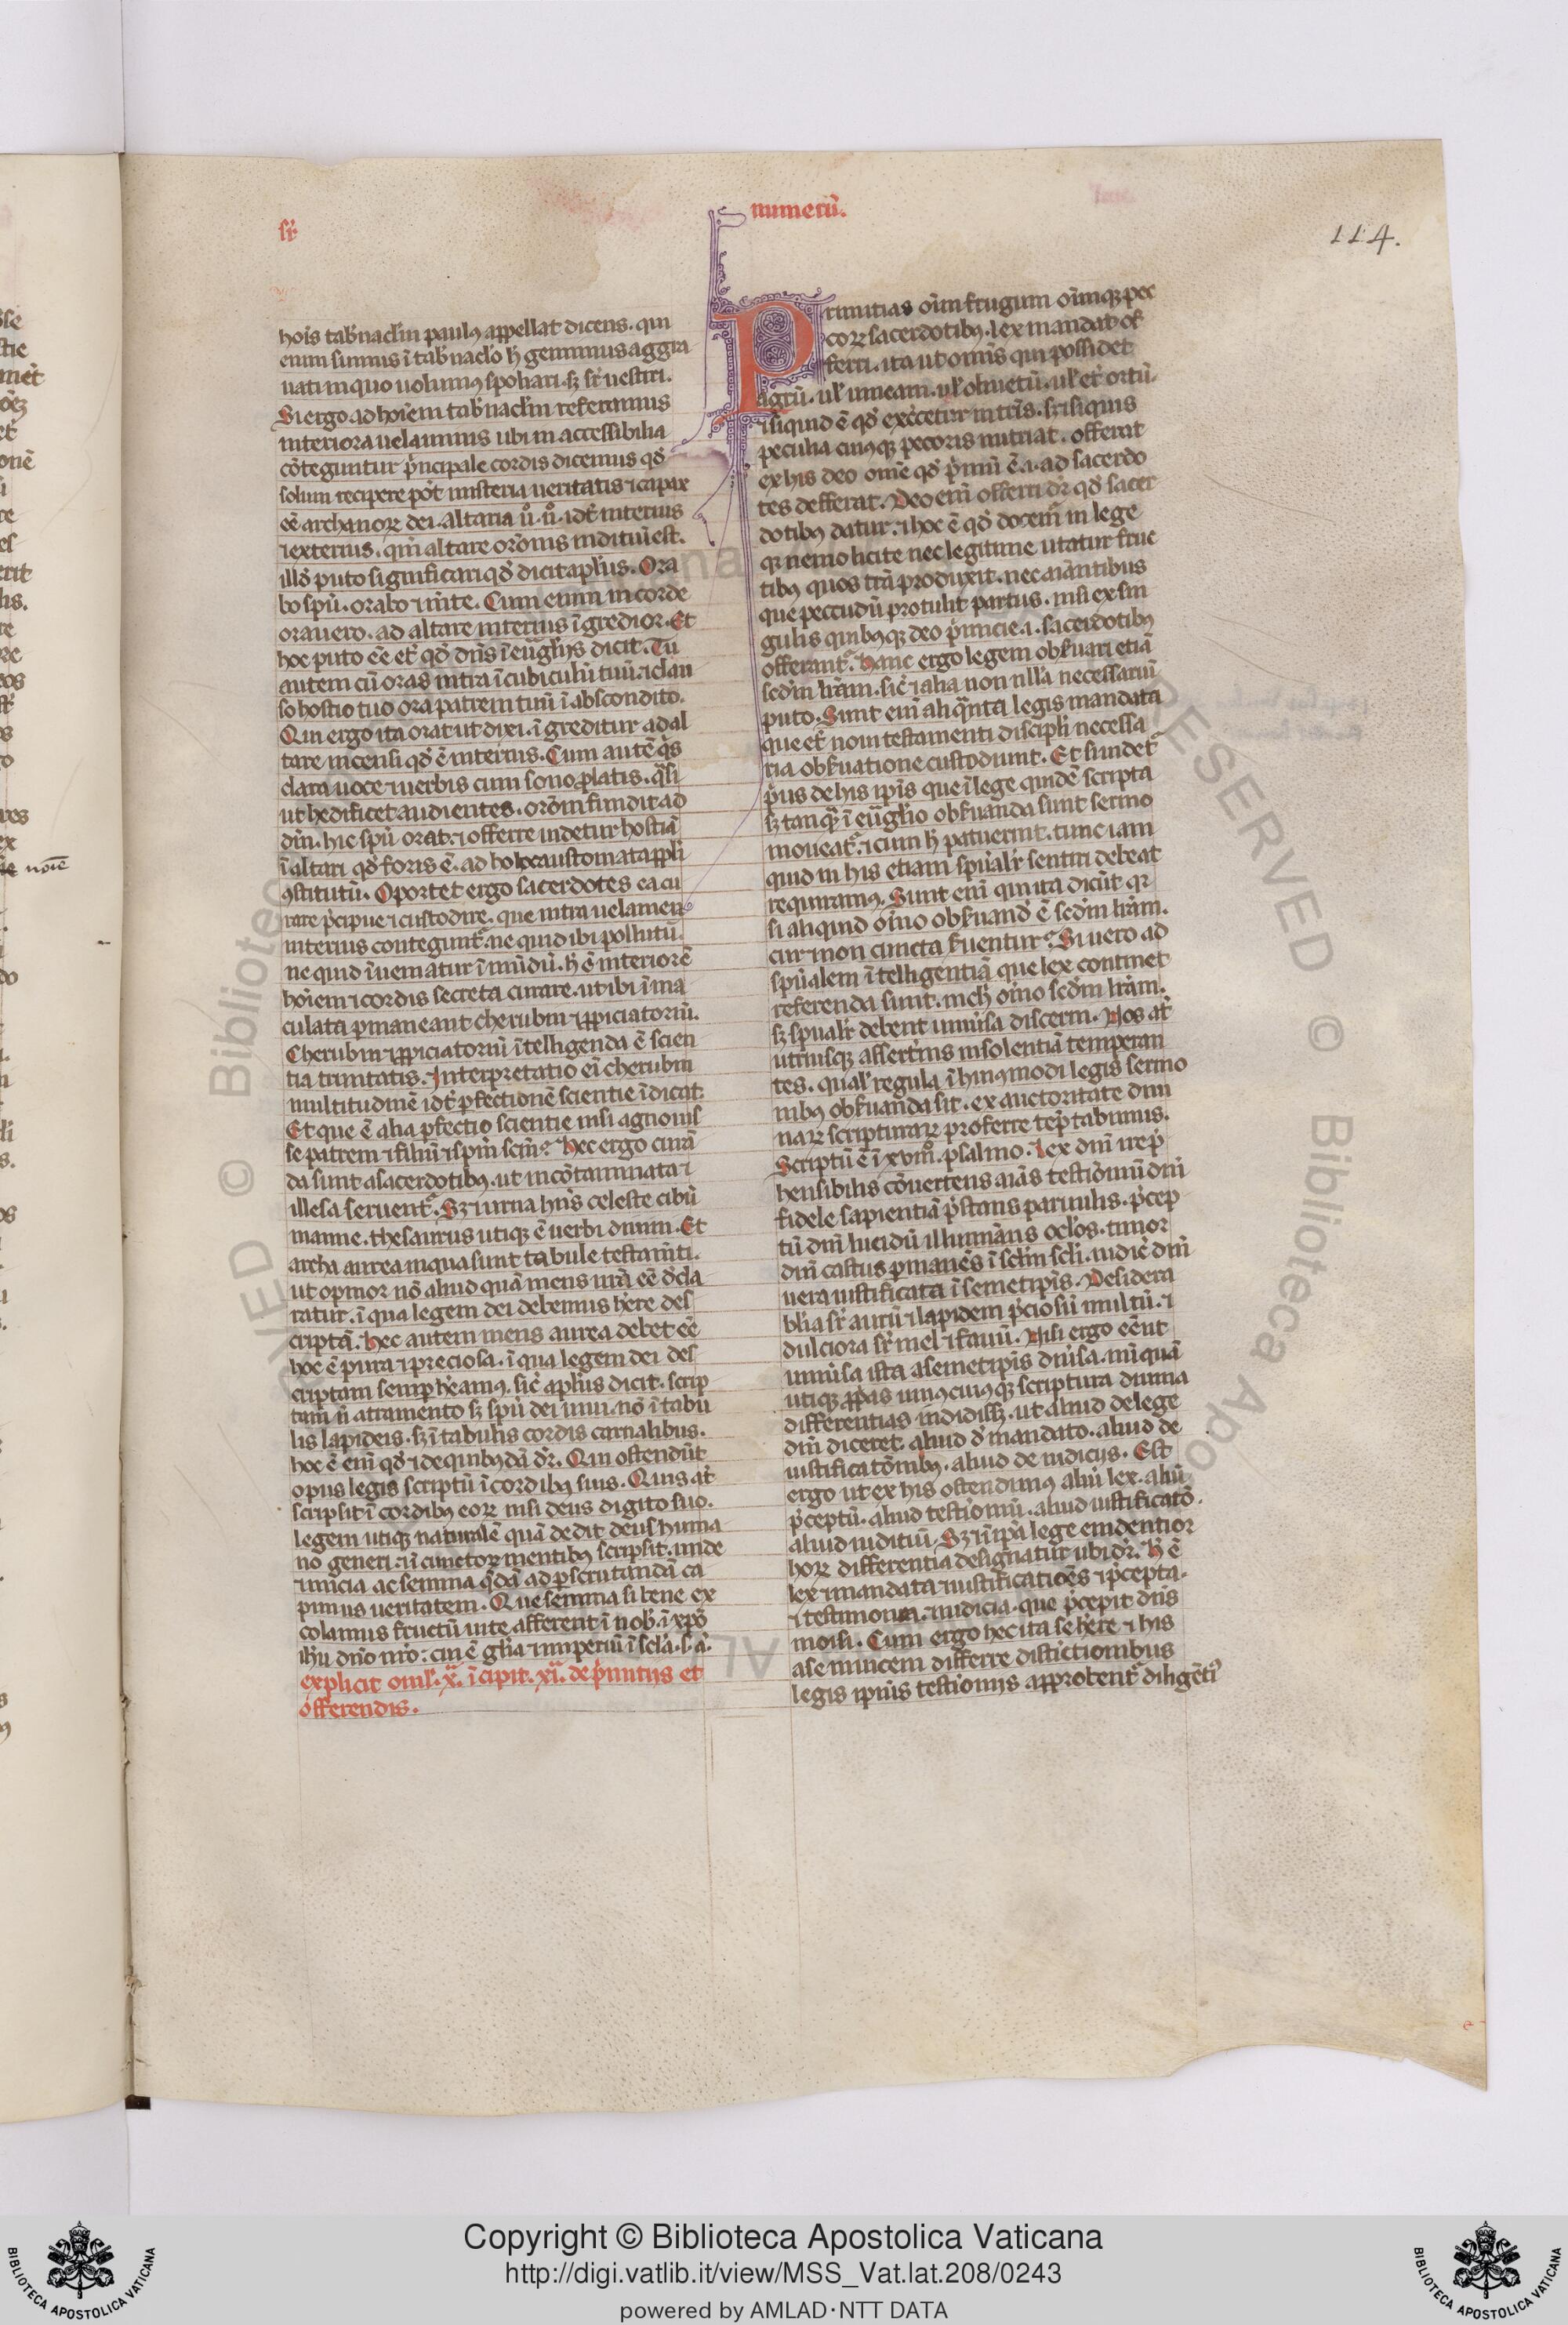 sr̄
numerū.
114.
hoīs tab̓nacl̓m paulꝰ appellat dicens. qui
enim sumus ī tab̓naclo h̓ gemimus aggra
uati in quo uolumꝰ spoliari. sꝫ sr̄ uestiri.
Si ergo ad hoīem tab̓nacl̓m referamus
interiora uelaminis ubi inaccessibilia
cōteguntur p̓ncipale cordis dicemus qd̓
solum recipere pōt misteria ueritatis ⁊ capax
eē archanoꝝ dei. Altaria u̓o. n̓o. idē interius
⁊ exterius. qm̄ altare orōnis inditiū est.
illd̓ puto significari qd̓ dicit apl̓us. Ora
bo spū. orabo ⁊ mīte. Cum enim in corde
orauero. ad altare interius īgredior. Et
hoc puto eē et̓ qd̓ dn̄s ī euḡl̓ijs dicit. Tu
autem cū oras intra ī cubiculū tuū. ⁊ clau
so hostio tuo ora patrem tuū ī abscondito.
Qui ergo ita orat ut dixi. īgreditur ad al
tare incensi qd̓ ē interius. Cum autē q̓s
clara uoce ⁊ uerbis cum sono ꝓlatis. q̓si
ut hedificet audientes. orōm fundit ad
dn̄m. hic spū orat. ⁊ offerre uidetur hostiā
ī altari qd̓ foris ē. ad holocaustomata ppl̓i
ꝯstitutū. Oportet ergo sacerdotes ea cu
rare p̓cipue ⁊ custodire. que intra uelamen
interius contegunt᷑. ne quid ibi pollutū.
ne quid īueniatur īmūdū. h̓ ē interiorē
hoīem ⁊ cordis secreta curare. ut ibi īma
culata ꝑmaneant cherubin ⁊ ꝓpiciatoriū.
Cherubin ⁊ ꝓpiciatoriū ītelligenda ē scien
tia trinitatis. Interpretatio ei̓ cherubin
multitudinē idē ꝑfectionē scientie īdicat.
Et que ē alia ꝑfectio scientie nisi agnouis
se patrem ⁊ filiū ⁊ spm̄ scm̄? Hec ergo curā
da sunt a sacerdotibꝰ. ut incōtaminata ⁊
illesa seruent᷑. Sꝫ ⁊ urna hn̄s celeste cibū
manne. thesaurus utiqꝫ ē uerbi diuini. Et
archa aurea in qua sunt tabule testam̄ti.
ut opinor nō aliud quā mens nr̄a eē dcla
ratur. ī qua legem dei debemus hēre des
criptā. Hec autem mens aurea debet eē
hoc ē pura ⁊ preciosa. ī qua legem dei des
criptam semꝑ hēamꝰ. sic̓ apl̓us dicit. scrip
tam n̄ atramento sꝫ spū dei uiui. nō ī tabu
lis lapideis. sꝫ ī tabulis cordis carnalibus.
hoc ē eni̓ qd̓ ⁊ de quibꝰdā dr̄. Qui ostendūt
opus legis scriptū ī cordibꝰ suis. Quis at̓
scripsit ī cordibꝰ eoꝝ nisi deus digito suo.
legem utiqꝫ naturalē quā dedit deus huma
no generi. ⁊ ī cunctoꝝ mentibꝰ scripsit. unde
⁊ inicia ac semina q̓dā ad ꝑscrutandā ca
pimus ueritatem. Que semina si bene ex
colamus fructū uite afferent ī nob̓. ī xp̄o
ih̄u dn̄o nr̄o: cui ē gl̓ia ⁊ imperiū ī sc̓la. s. a̓.
explicit omel̓. x̓. īcipit. xi̓. de p̓mitijs et
offerendis.
Primitias oīm frugum oīmqꝫ pec
coꝝ sacerdotibꝰ. lex mandat of
ferri. ita ut omīs qui possidet
agrū. ul̓ uineam. ul̓ oliuetū. ul̓ et̓ ortū.
⁊ siquid ē qd̓ ex̓cetur in tr̄is. sr̄ siquis
peculia cuiusqꝫ pecoris nutriat. offerat
ex his deo omē qd̓ p̓mū ē. i. ad sacerdo
tes defferat. Deo eni̓ offerri dr̄ qd̓ sacer
dotibꝰ datur. ⁊ hoc ē qd̓ docem̄ in lege
qꝛ nemo licite nec legitime utatur fruc
tibꝰ quos tr̄a produxit. nec aīantibus
que peccudū protulit partus. nisi ex sin
gulis quibꝰqꝫ deo p̓micie. i. sacerdotibꝰ
offerant᷑. Hanc ergo legem obseruari etiā
scd̓m lr̄am. sic̓ ⁊ alia non nll̓a necessariū
puto. Sunt eni̓ aliq̓nta legis mandata
que et̓ noui testamenti discipli̓ necessa
ria obseruatione custodiunt. Et si uidet᷑
p̓us de his ip̄is que ī lege quidē scripta
sꝫ tanq̓ ī euḡl̓io obseruanda sunt sermo
moueat᷑. ⁊ cum h̓ patuerint. tunc iam
quid in his etiam spūalr̓ sentiri debeat
requiramꝰ. Sunt eni̓ qui ita dicūt qꝛ
si aliquid oīno obseruand̓ ē scd̓m lr̄am.
cur non cuncta seruentur? Si uero ad
spūalem ītelligentiā que lex continet
referenda sunt. nich̓ oīno scd̓m lr̄am.
sꝫ spūalr̓ debent uniu̓sa discerni. Nos at̓
utriusqꝫ assert̓nis insolentiā temperan
tes. qual̓ regula ī hiusmodi legis sermo
nibꝰ obseruanda sit. ex auctoritate diui
naꝝ scripturaꝝ proferre tep̄tabimus.
Scriptū ē ī xviii̓. psalmo. Lex dn̄i irrep̓
hensibilis cōuertens aīas testimoniū dn̄i
fidele sapientiā p̓stans paruulis. p̓cep
tū dn̄i lucidū illuminans ocl̓os. timor
dn̄i castus ꝑmanēs ī scl̓m scl̓i. iudic̓ dn̄i
uera iustificata ī semetip̄is. Desidera
bl̓ia sr̄ aurū ⁊ lapidem p̓ciosū multū. ⁊
dulciora sr̄ mel ⁊ fauū. Nisi ergo eēnt
uniu̓sa ista a semetip̄is diu̓sa. nū̓quā
utiqꝫ ꝓprias uniꝰcuiꝰqꝫ scriptura diuina
differentias indidissꝫ. ut aliud de lege
dn̄i diceret. aliud d̓ mandato. aliud de
iustificatōnibꝰ. aliud de iudicijs. Est
ergo ut ex his ostendimꝰ aliū lex. aliū
p̓ceptū. aliud testimoniū. aliud iustificatō.
aliud iuditiū. Sꝫ ⁊ ī ip̄a lege euidentior
hoꝝ differentia designatur ubi dr̄. H̓ ē
lex ⁊ mandata ⁊ iustificatiōes ⁊ p̓cepta.
⁊ testimonia. ⁊ iudicia. que p̓cepit dn̄s
moisi. Cum ergo hec ita se hēre ⁊ his
a se inuicem differre distictionibus
legis ip̄ius testimonijs approbent᷑ diligēti᷑
Copyright © Biblioteca Apostolica Vaticana
http://digi.vatlib.it/view/MSS_Vat.lat.208/0243
powered by AMLAD·NTT DATA